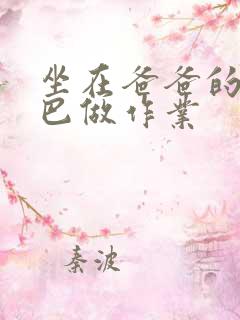 坐在爸爸的
巴做作业
秦波